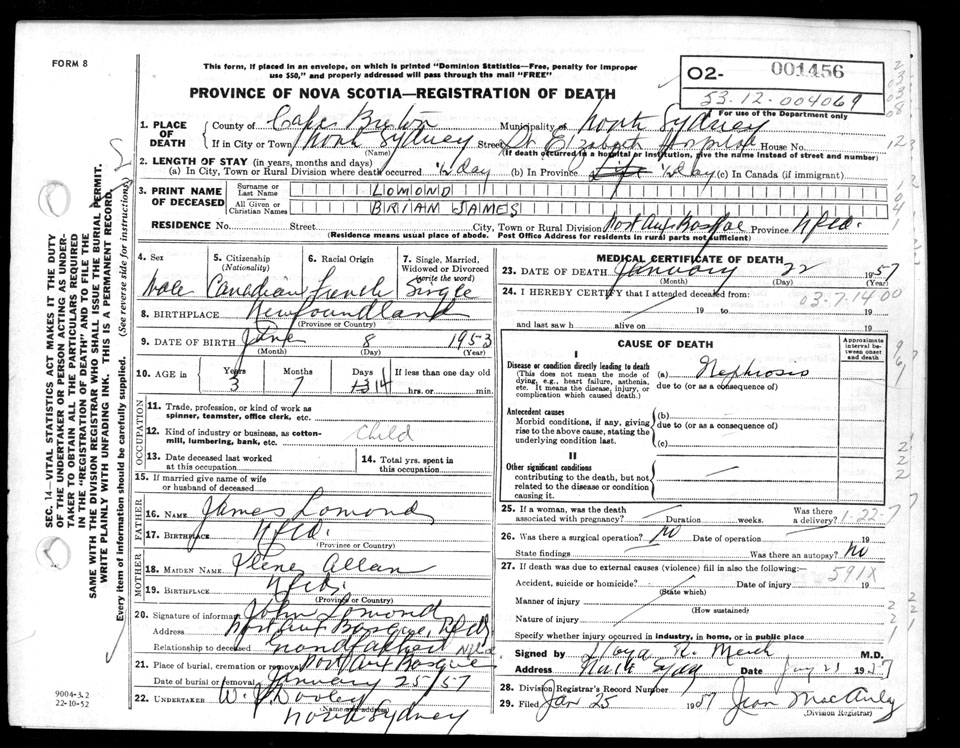 FORM 8
This form, if placed in an envelope, on which is printed "Dominion Statistics—Free, penalty for improper
use $50," and properly addressed will pass through the mail "FREE"
PROVINCE OF NOVA SCOTIA—REGISTRATION OF DEATH
O2- 001456
53-12-004069
For use of the Department only
1. PLACE OF DEATH
County of Cape Breton Municipality of North Sydney
If in City or Town North Sydney Street St. Elizabeth Hospital House No.
(Name) (If death occurred in a hospital or institution, give the name instead of street and number)
2. LENGTH OF STAY (in years, months and days)
(a) In City, Town or Rural Division where death occurred 1/2 day (b) In Province 1/2 Day (c) In Canada (if immigrant)
3. PRINT NAME OF DECEASED
Surname or Last Name LOMOND
All Given or Christian Names BRIAN JAMES
RESIDENCE No. Street City, Town or Rural Division Port Aux Basque Province Nfld.
(Residence means usual place of abode. Post Office Address for residents in rural parts not sufficient)
4. Sex Male
5. Citizenship (Nationality) Canadian
6. Racial Origin French
7. Single, Married, Widowed or Divorced (write the word) Single
8. BIRTHPLACE Newfoundland
(Province or Country)
9. DATE OF BIRTH June 8 1953
(Month) (Day) (Year)
10. AGE in Years 3 Months 7 Days 14 If less than one day old
hrs. or min.
OCCUPATION
11. Trade, profession, or kind of work as spinner, teamster, office clerk, etc.
12. Kind of industry or business, as cotton-mill, lumbering, bank, etc. Child
13. Date deceased last worked at this occupation
14. Total yrs. spent in this occupation
15. If married give name of wife or husband of deceased
FATHER
16. NAME James Lomond
17. BIRTHPLACE Nfld.
(Province or Country)
MOTHER
18. MAIDEN NAME Ilene Allan
19. BIRTHPLACE Nfld.
(Province or Country)
20. Signature of informant John Lomond
Address Port Aux Basque, Nfld
Relationship to deceased Grandfather
21. Place of burial, cremation or removal Port Aux Basque Nfld
Date of burial or removal January 25/57
22. UNDERTAKER W. Dooley
(Name and address)
North Sydney
MEDICAL CERTIFICATE OF DEATH
23. DATE OF DEATH January 22 1957
(Month) (Day) (Year)
24. I HEREBY CERTIFY that I attended deceased from:
03-7-1400
19 to 19
and last saw h alive on 19
CAUSE OF DEATH
Approximate interval between onset and death
I
Disease or condition directly leading to death (a) Nephrosis
(This does not mean the mode of dying, e.g., heart failure, asthenia, etc. It means the disease, injury, or complication which caused death.)
due to (or as a consequence of)
Antecedent causes (b)
Morbid conditions, if any, giving rise to the above cause, stating the underlying condition last.
due to (or as a consequence of)
(c)
II
Other significant conditions
contributing to the death, but not related to the disease or condition causing it.
25. If a woman, was the death associated with pregnancy? Duration weeks. Was there a delivery?
1-22-7
26. Was there a surgical operation? No Date of operation 19
State findings Was there an autopsy? No
27. If death was due to external causes (violence) fill in also the following:—
591X
Accident, suicide or homicide? Date of injury 19
(State which)
Manner of injury
(How sustained)
Nature of injury
Specify whether injury occurred in industry, in home, or in public place
Signed by M.D.
Address North Sydney Date Jany 21 1957
28. Division Registrar's Record Number
29. Filed Jan 25 1957 Jean MacAuley
(Division Registrar)
SEC. 14—VITAL STATISTICS ACT MAKES IT THE DUTY
OF THE UNDERTAKER OR PERSON ACTING AS UNDER-
TAKER TO OBTAIN ALL THE PARTICULARS REQUIRED
IN THE "REGISTRATION OF DEATH" AND TO FILE THE
SAME WITH THE DIVISION REGISTRAR WHO SHALL ISSUE THE BURIAL PERMIT.
WRITE PLAINLY WITH UNFADING INK. THIS IS A PERMANENT RECORD.
Every item of information should be carefully supplied. (See reverse side for instructions)
9004-3.2
22-10-52